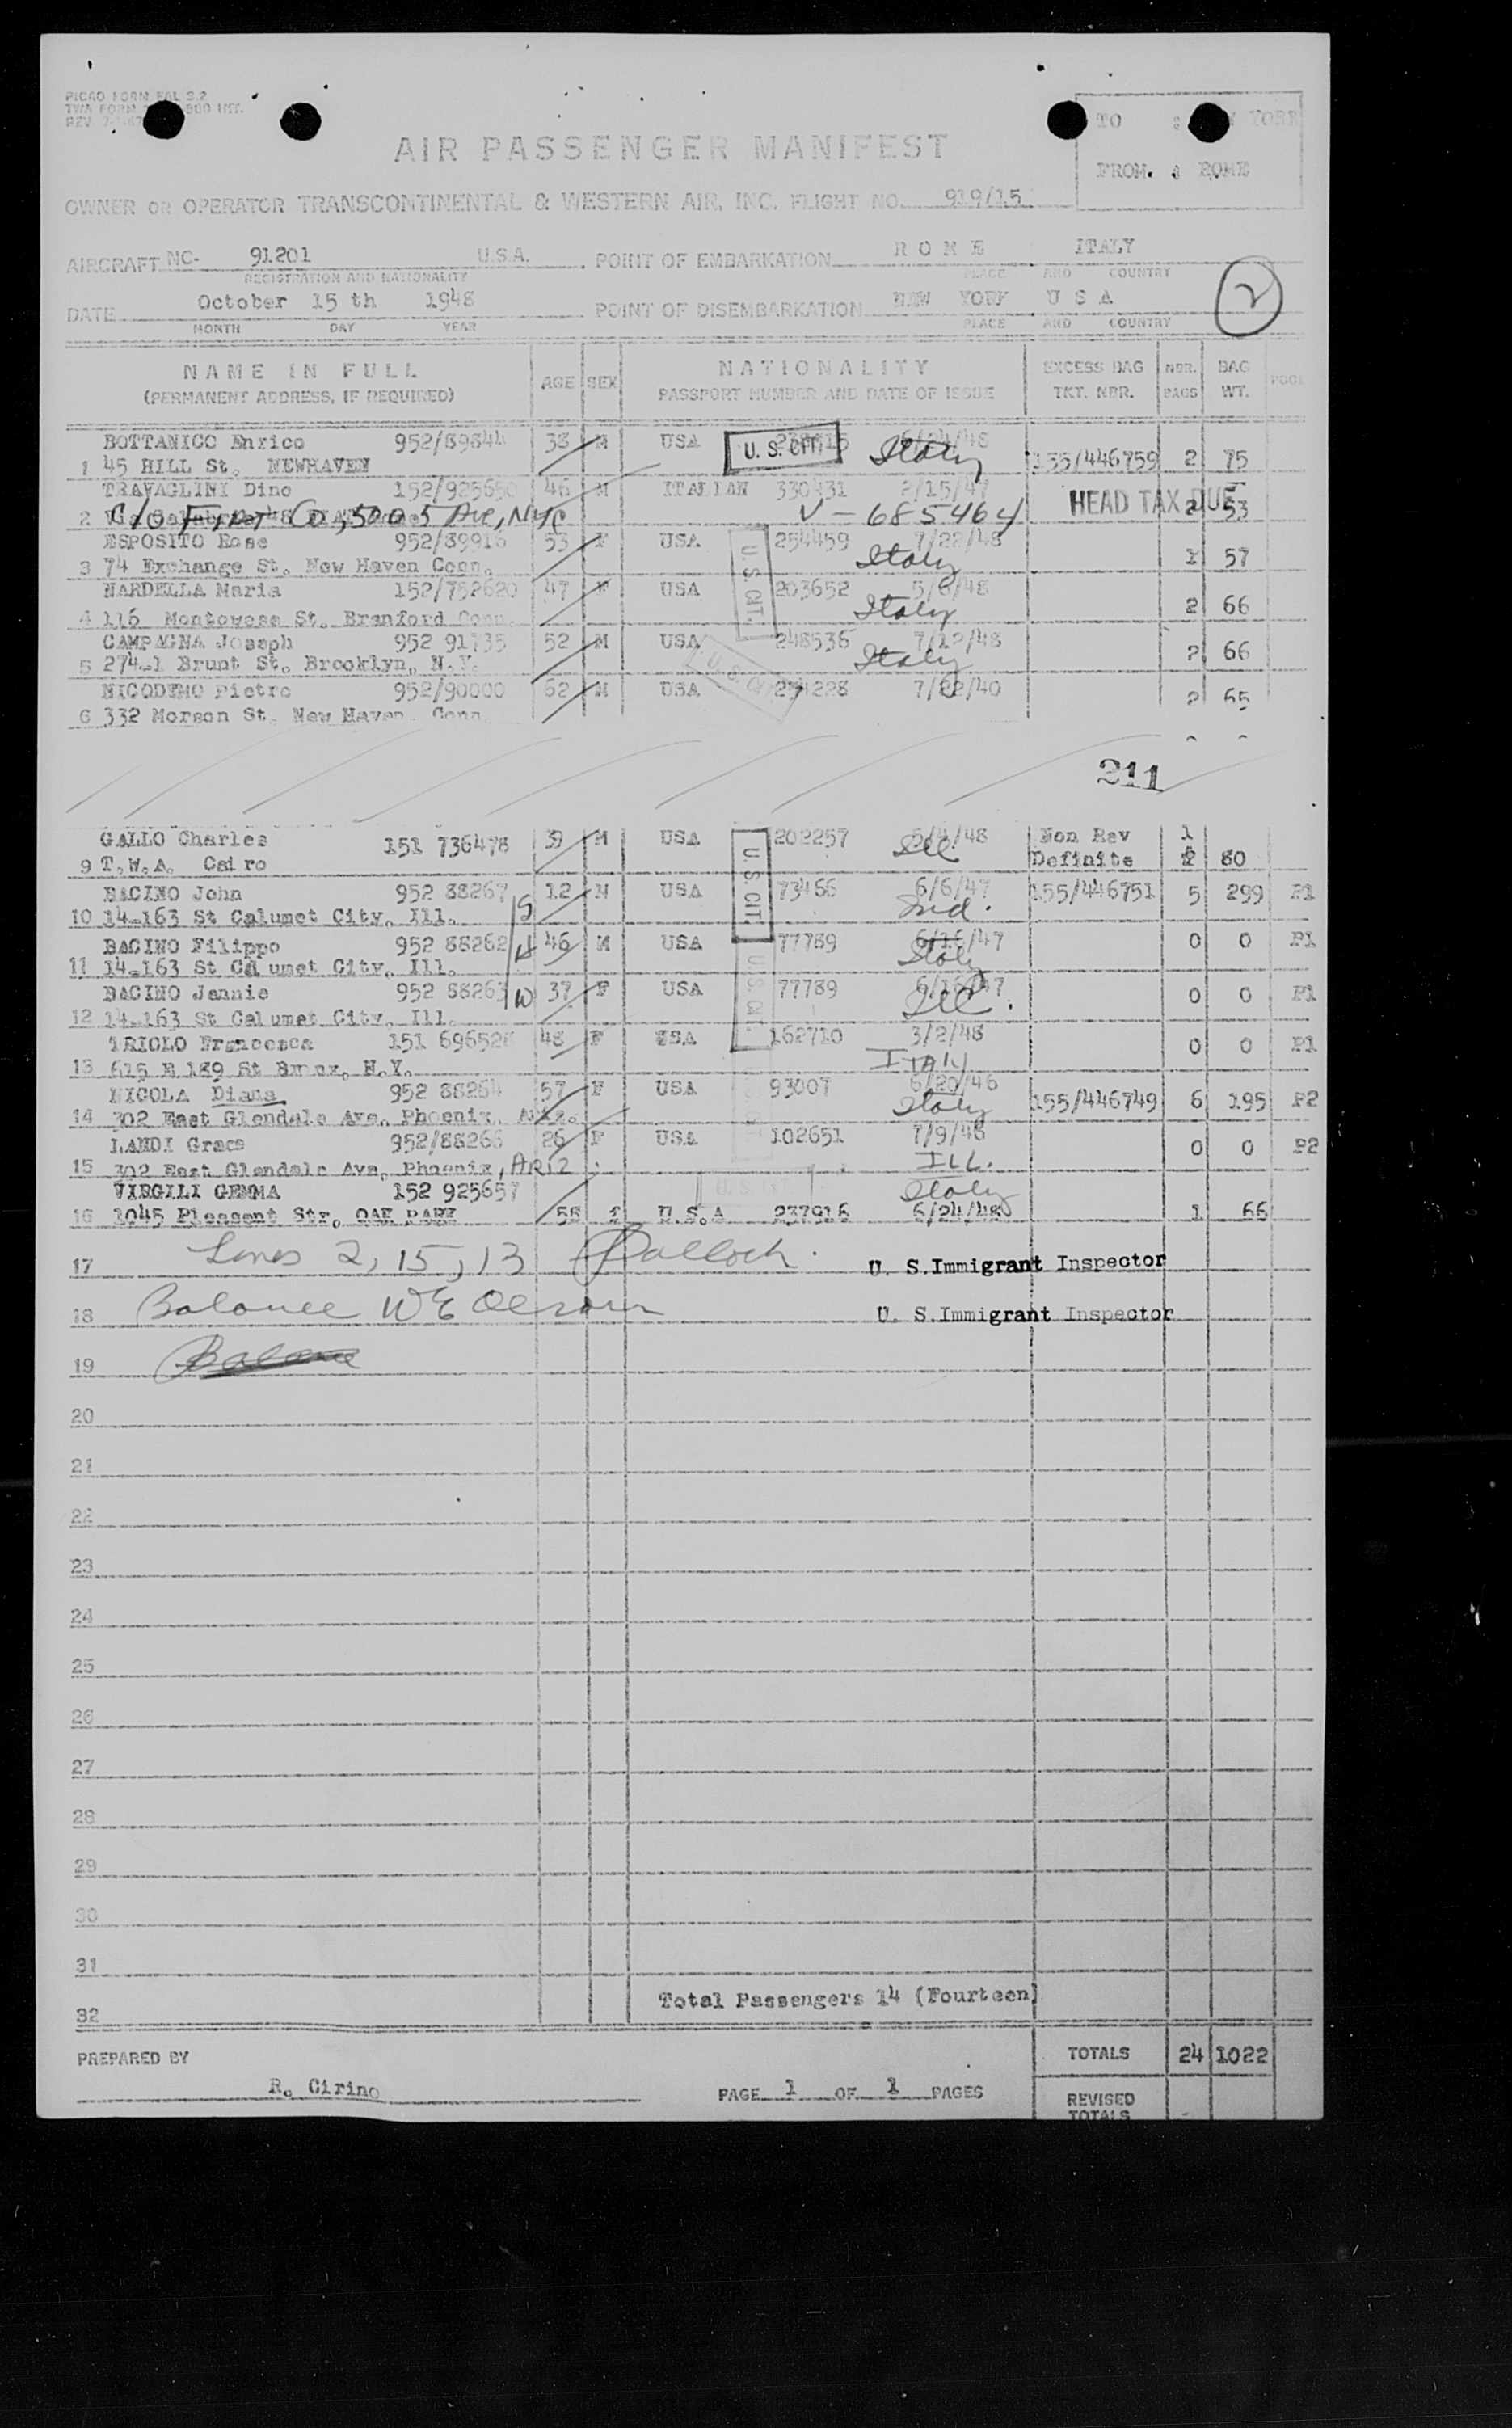 PICAO FORM FAL 2.2
TWA FORM
REV
TO : NEW YORK
FROM. : ROME
AIR PASSENGER MANIFEST
OWNER OR OPERATOR TRANSCONTINENTAL & WESTERN AIR, INC. FLIGHT NO. 919/15
AIRCRAFT NC- 91201 U.S.A. POINT OF EMBARKATION ROME ITALY
REGISTRATION AND NATIONALITY PLACE AND COUNTRY
DATE October 15 th 1948 POINT OF DISEMBARKATION NEW YORK U S A
MONTH DAY YEAR PLACE AND COUNTRY
2
NAME IN FULL AGE SEX NATIONALITY EXCESS BAG NBR. BAG POOL
(PERMANENT ADDRESS, IF REQUIRED) PASSPORT NUMBER AND DATE OF ISSUE TKT. NBR. BAGS WT.
BOTTANICO Enrico 952/89844 38 M USA U. S. CIT. Italy
1 45 HILL St. NEWHAVEN 155/446759 2 75
TRAVAGLINI Dino 152/925650 46 M ITALIAN 330431 2/15/47 HEAD TAX DUE
2 C/O Co, 500 5 Ave, NYC V-685464 2 53
ESPOSITO Rose 952/89916 53 F USA U. S. CIT. 254459 7/22/48
3 74 Exchange St. New Haven Conn. Italy 1 57
NARDELLA Maria 152/752620 47 F USA 203652 5/6/48
4 116 Montowese St. Branford Conn. Italy 2 66
CAMPAGNA Joseph 952 91735 52 M USA 248536 7/12/48
5 274-1 Brunt St. Brooklyn, N.Y. Italy 2 66
NICODEMO Pietro 952/90000 62 M USA U. S. CIT. 7/22/40
6 332 Morson St. New Haven. Conn. 2 65
211
GALLO Charles 151 736478 39 M USA U. S. CIT. 202257 5/4/48 Non Rev 1
9 T.W.A. Cairo Ill. Definite 2 80
BACINO John 952 88267 S 12 M USA 73466 6/6/47 155/446751 5 299 P1
10 14-163 St Calumet City. Ill. Ind.
BACINO Filippo 952 88262 H 46 M USA 77789 6/16/47 0 0 P1
11 14-163 St Calumet City. Ill. Italy
BACINO Jennie 952 88263 W 37 F USA U. S. CIT. 77789 6/16/47 0 0 P1
12 14-163 St Calumet City. Ill. Ill.
TRIOLO Francesca 151 696528 48 F USA 162710 3/2/48 0 0 P1
13 615 E 189 St Bronx, N.Y. ITALY
NICOLA Diana 952 88264 57 F USA 93007 6/20/46 155/446749 6 195 P2
14 302 East Glendale Ave. Phoenix. Ariz. Italy
LANDI Grace 952/88266 26 F USA 102651 7/9/48 0 0 P2
15 302 East Glendale Ave, Phoenix, ARIZ. ILL.
VIRGILI GEMMA 152 925657 Italy
16 1045 Pleasant Str. OAK PARK 56 f U.S.A 237916 6/24/48 1 66
17 Lines 2, 15, 13 U. S. Immigrant Inspector
18 Balance U. S. Immigrant Inspector
19 Balance
20
21
22
23
24
25
26
27
28
29
30
31
32 Total Passengers 14 (Fourteen)
PREPARED BY R. Cirino PAGE 1 OF 1 PAGES TOTALS 24 1022
REVISED
TOTALS